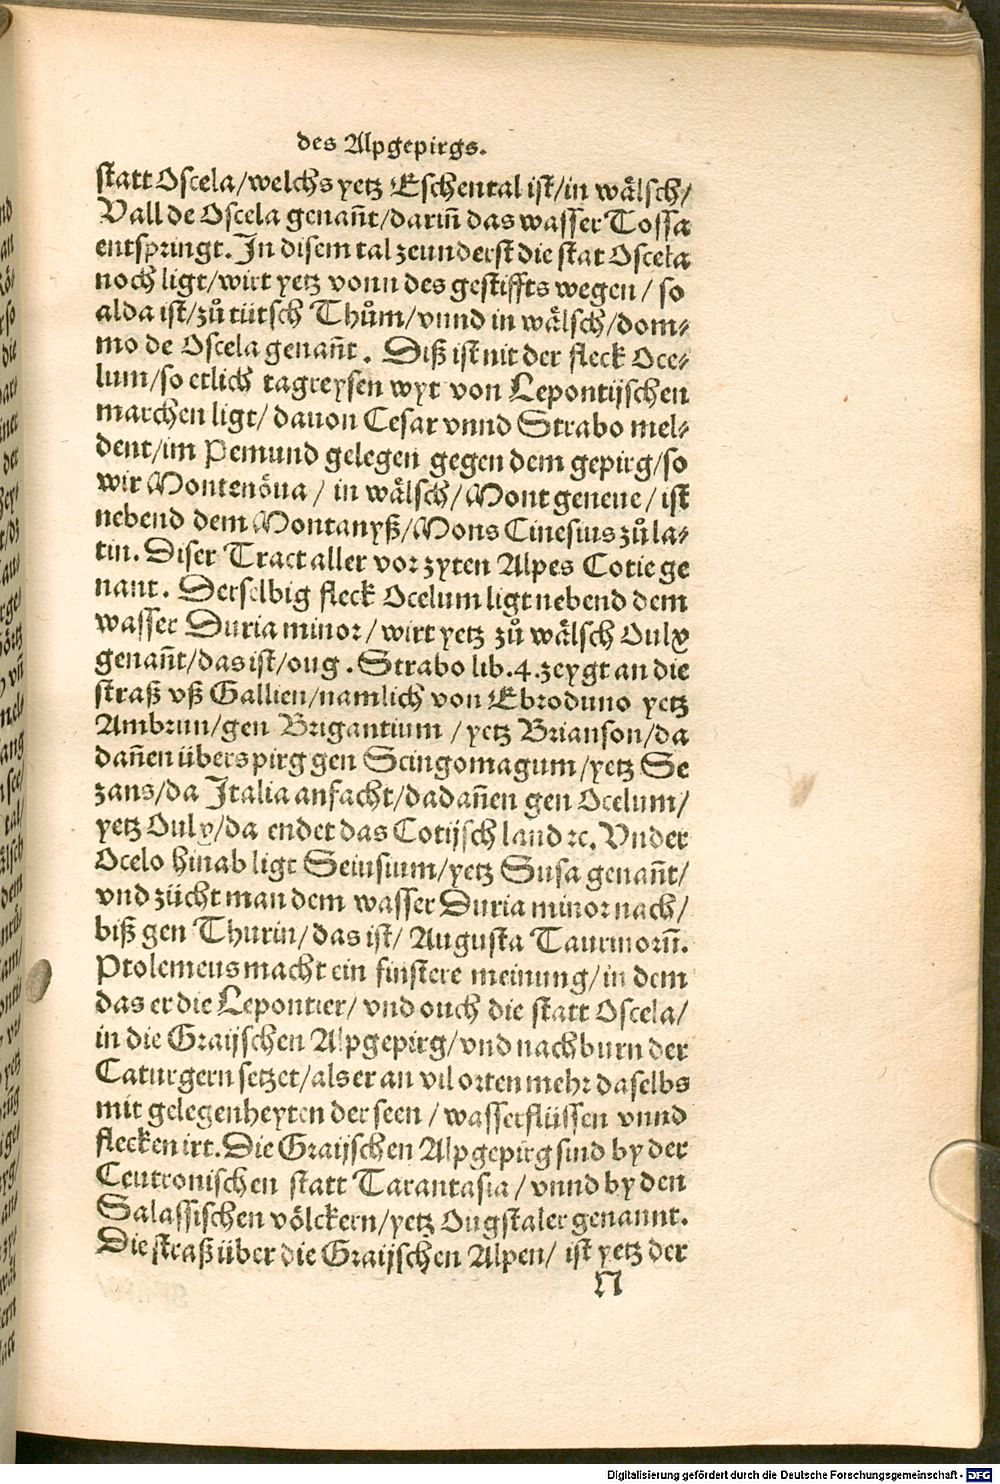 des Alpgepirgs.
statt Oscela/welchs yetz Eschental ist/in wälsch/
Vall de Oscela genañt/dariñ das wasser Tossa
entspringt. In disem tal zeunderst die stat Oscela
noch ligt/wirt yetz vonn des gestiffts wegen/ so
alda ist/zů tütsch Thům/vnnd in wälsch/dom⸗
mo de Oscela genañt. Diß ist nit der fleck Oce⸗
lum/so etlich tagreysen wyt von Lepontijschen
marchen ligt/ dauon Cesar vnnd Strabo mel⸗
dent/im Pemund gelegen gegen dem gepirg/so
wir Montenöua / in wälsch/Mont geneue/ ist
nebend dem Montanyß/Mons Cinesius zů la⸗
tin. Diser Tract aller vor zyten Alpes Cotie ge
nant. Derselbig fleck Ocelum ligt nebend dem
wasser Duria minor/wirt yetz zů wälsch Oulx
genañt/das ist/oug. Strabo lib.4.zeygt an die
straß vß Gallien/namlich von Ebroduno yetz
Ambrun/gen Brigantium /yetz Brianson/da
dañen übers pirg gen Scingomagum/yetz Se
zans/da Italia anfacht/dadañen gen Ocelum/
yetz Oulx/da endet das Cotijsch land ꝛc. Vnder
Ocelo hinab ligt Seiusium/yetz Susa genañt/
vnd zücht man dem wasser Duria minor nach/
biß gen Thurin/das ist/ Augusta Taurinorũ.
Ptolemeus macht ein finstere meinung/in dem
das er die Lepontier/ vnd ouch die statt Oscela/
in die Graijschen Alpgepirg/vnd nachburn der
Caturgern setzet/als er an vil orten mehr daselbs
mit gelegenheyten der seen/wasserflüssen vnnd
flecken irt. Die Graijschen Alpgepirg sind by der
Ceutronischen statt Tarantasia/vnnd by den
Salassischen völckern/yetz Ougstaler genannt.
Die straß über die Graijschen Alpen/ ist yetz der
N
Digitalisierung gefördert durch die Deutsche Forschungsgemeinschaft - DFG